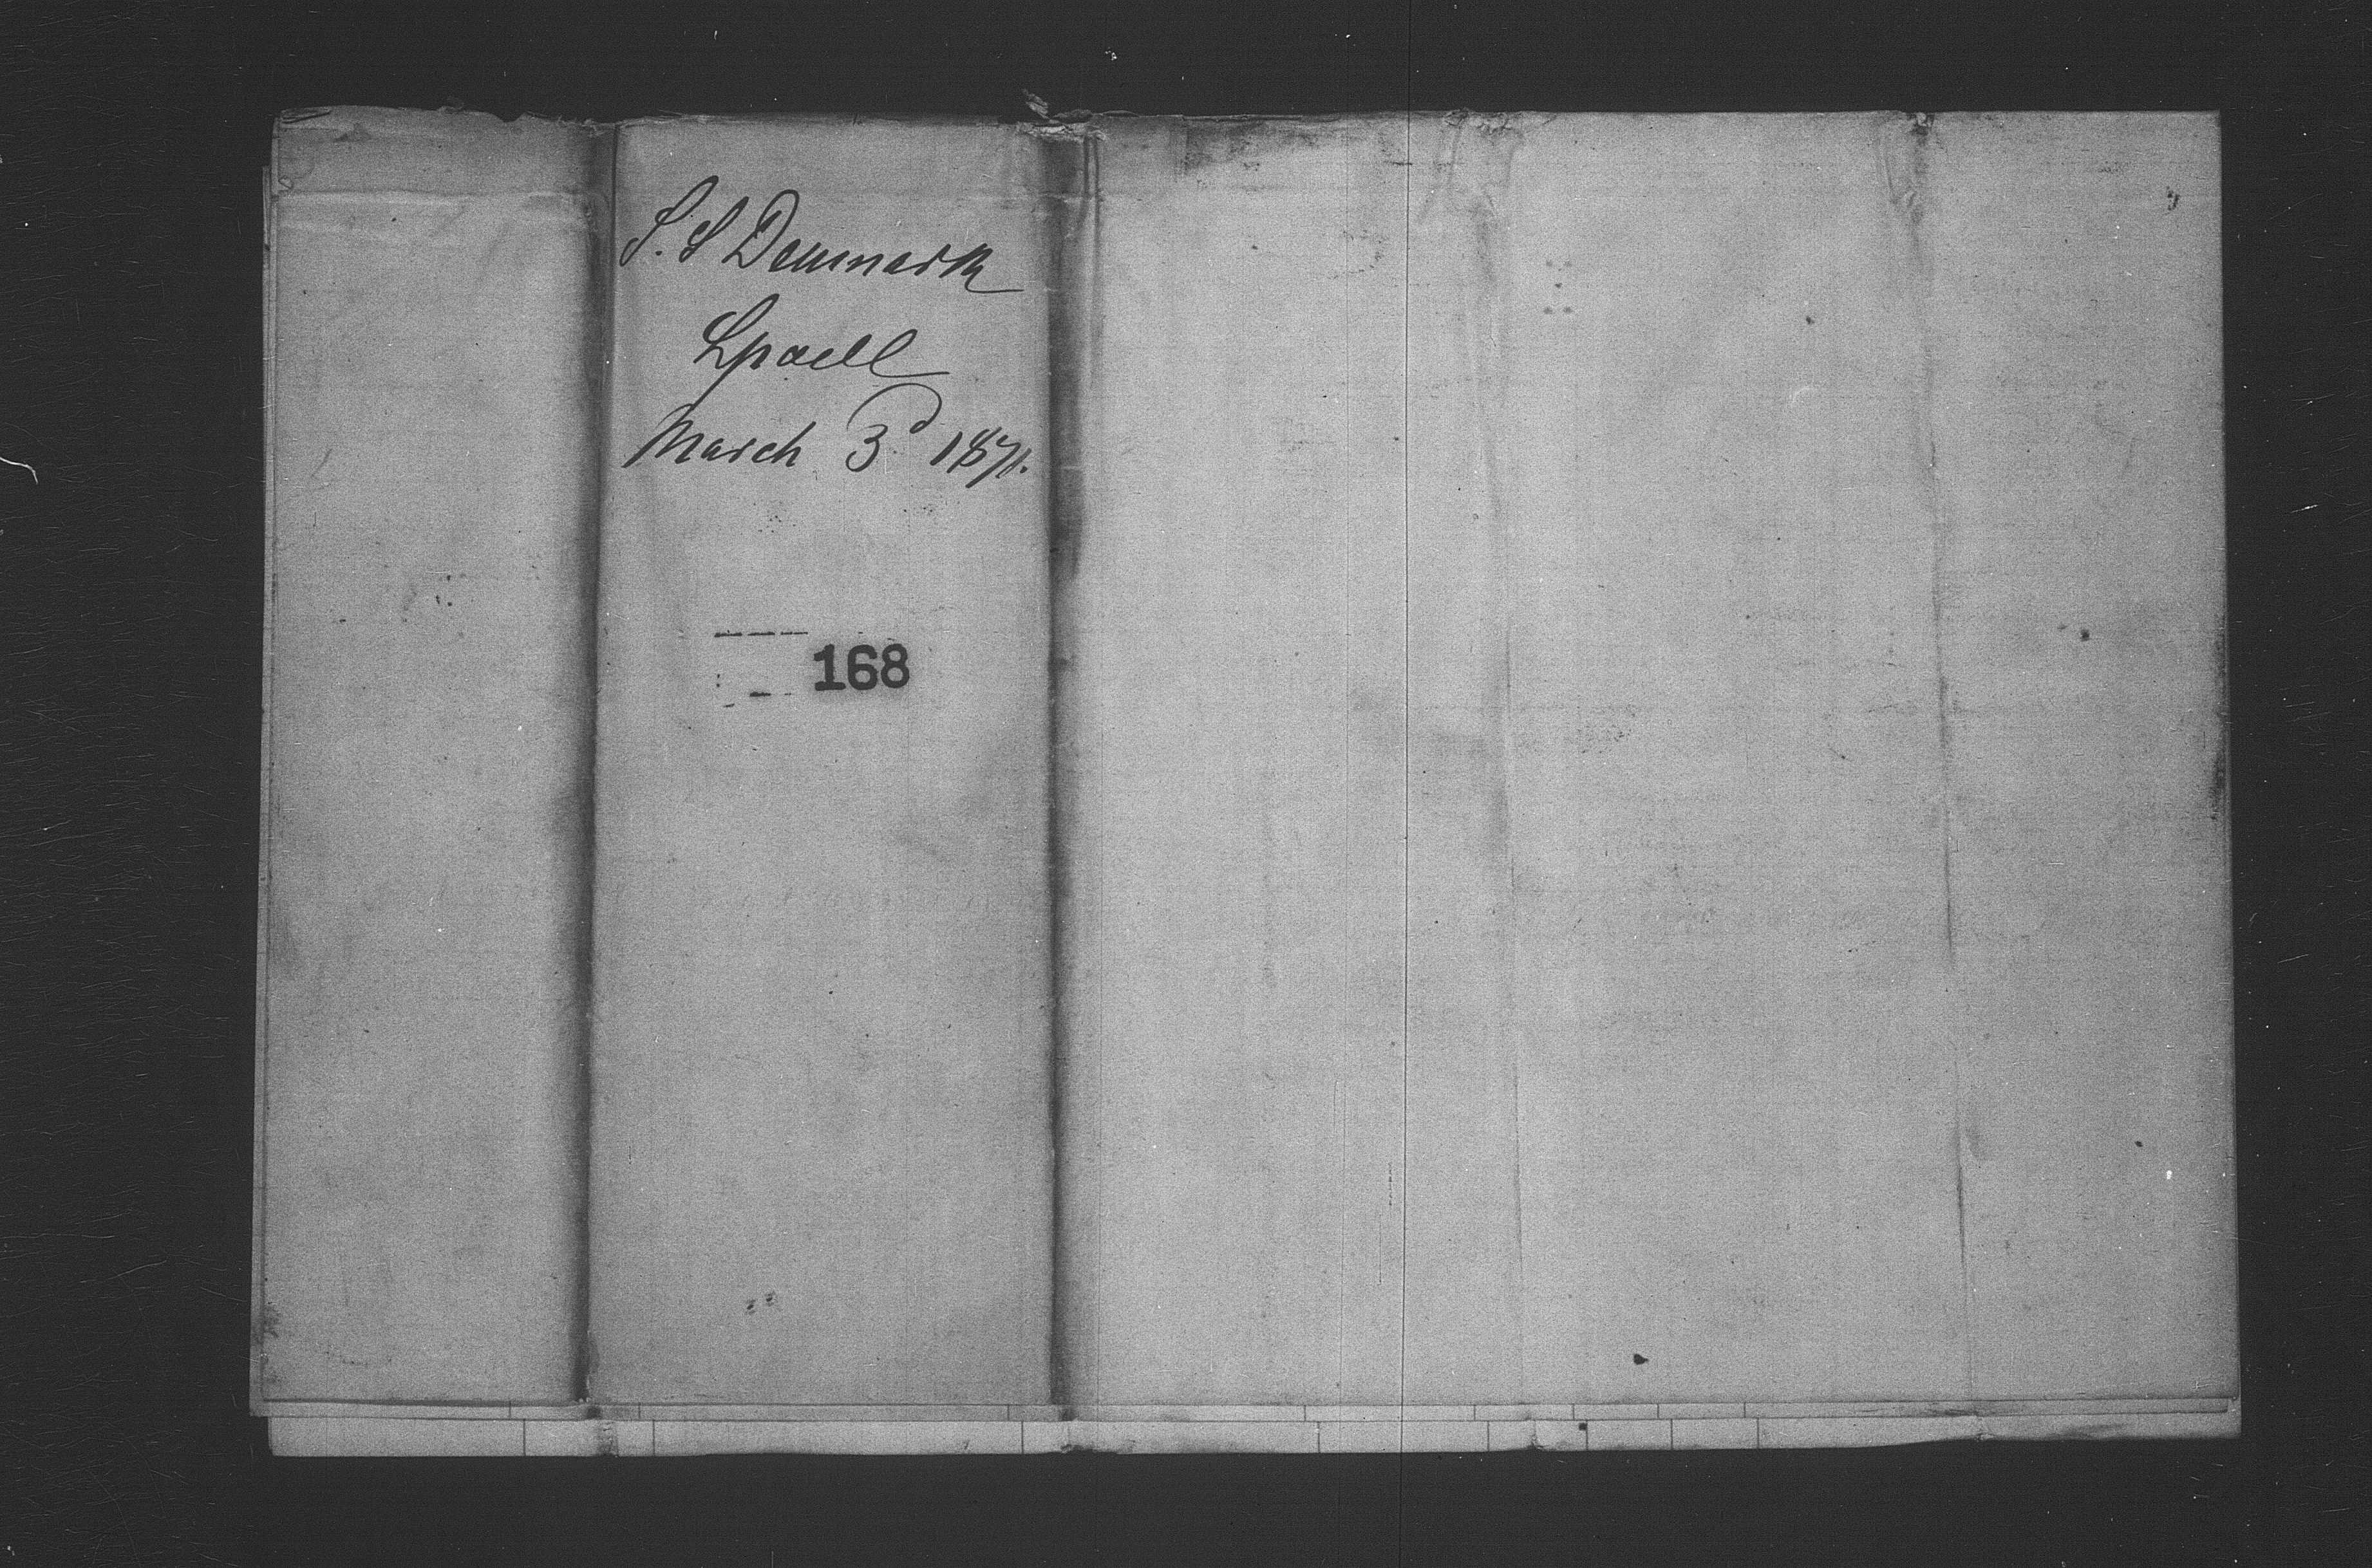 S.S Denmark
Lpoell
March 3d 1871.
168